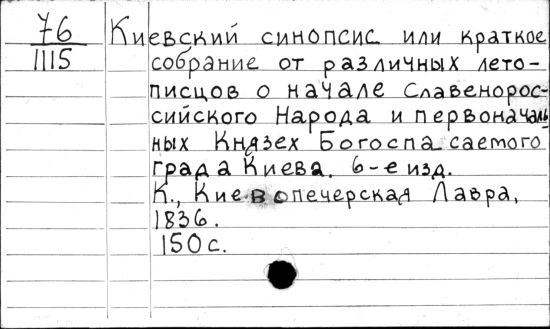 76 Киевский синопсис или краткое
1115 собрание от различных лето-
писцов о начале Славенорос-
сийского Народа и первоначаль-
ных Князех Богоспасаемого
града Киева. 6-е изд.
К., Киевопечерская Лавра,
1836.
150 с.